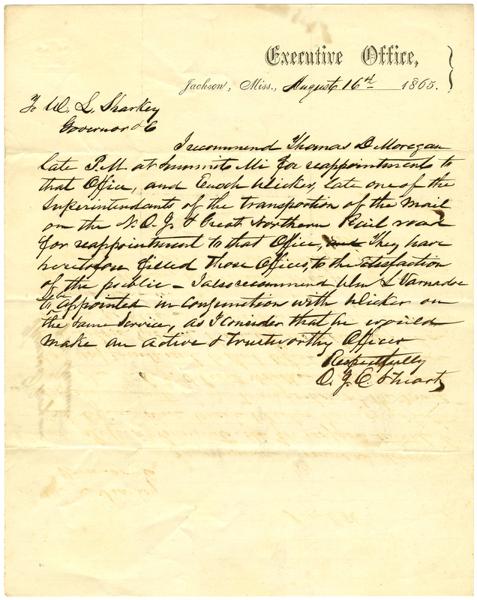 Executive Office,
Jackson, Miss., August 16th 1865.
To W. L. Sharkey
Governor &c
I recommend Thomas D. Moregan
late P.M. at Summit Mi for reappointment to
that Office, and Enoch Wicker, late one of the
Superintendants of the transportion of the Mail
on the N.O. J. & Great Northern Rail road
for reappointment to that Office, They have
heretofore filled those Offices, to the satisfaction
of the public – I also recommend Wm L Varnado
to appointed in conjunction with Wicker on
the same Service, as I consider that he would
make an active & trustworthy Officer
Respectfully
O. J. E. Stuart